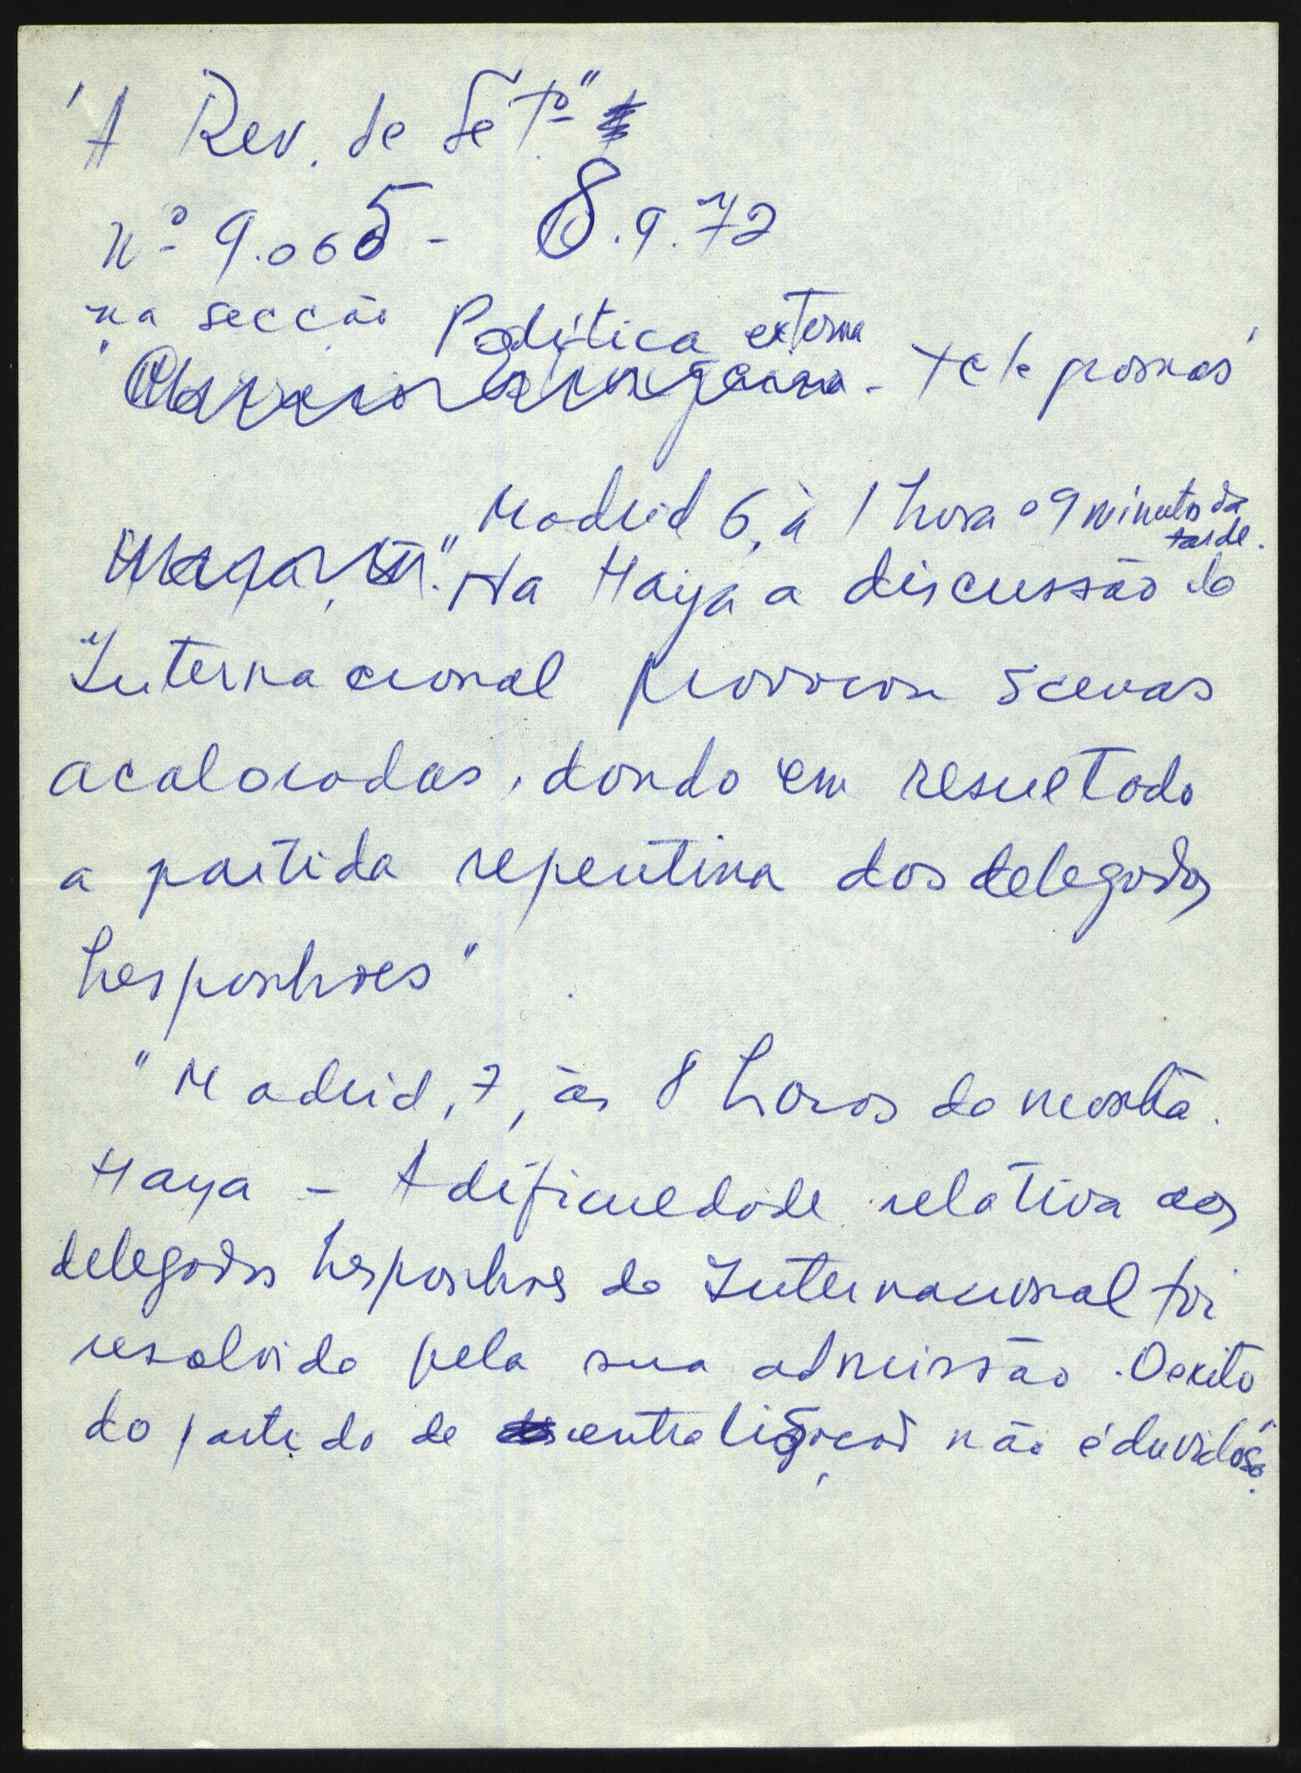 "A Rev. de Setº"
nº 9.065 - 8.9.72
na secção Política externa
- telegramas"
Madrid 6, à 1 hora e 9 minutos da
tarde.
"Na Haya a discussão da
Internacional provocou scenas
acaloradas, dando em resultado
a partida repentina dos delegados
hespanhoes"
"Madrid, 7, às 8 horas da manhã.
Haya - A dificuldade relativa aos
delegados hespanhoes da Internacional foi
resolvida pela sua admissão. O exito
do partido de centralisação não é duvidoso".